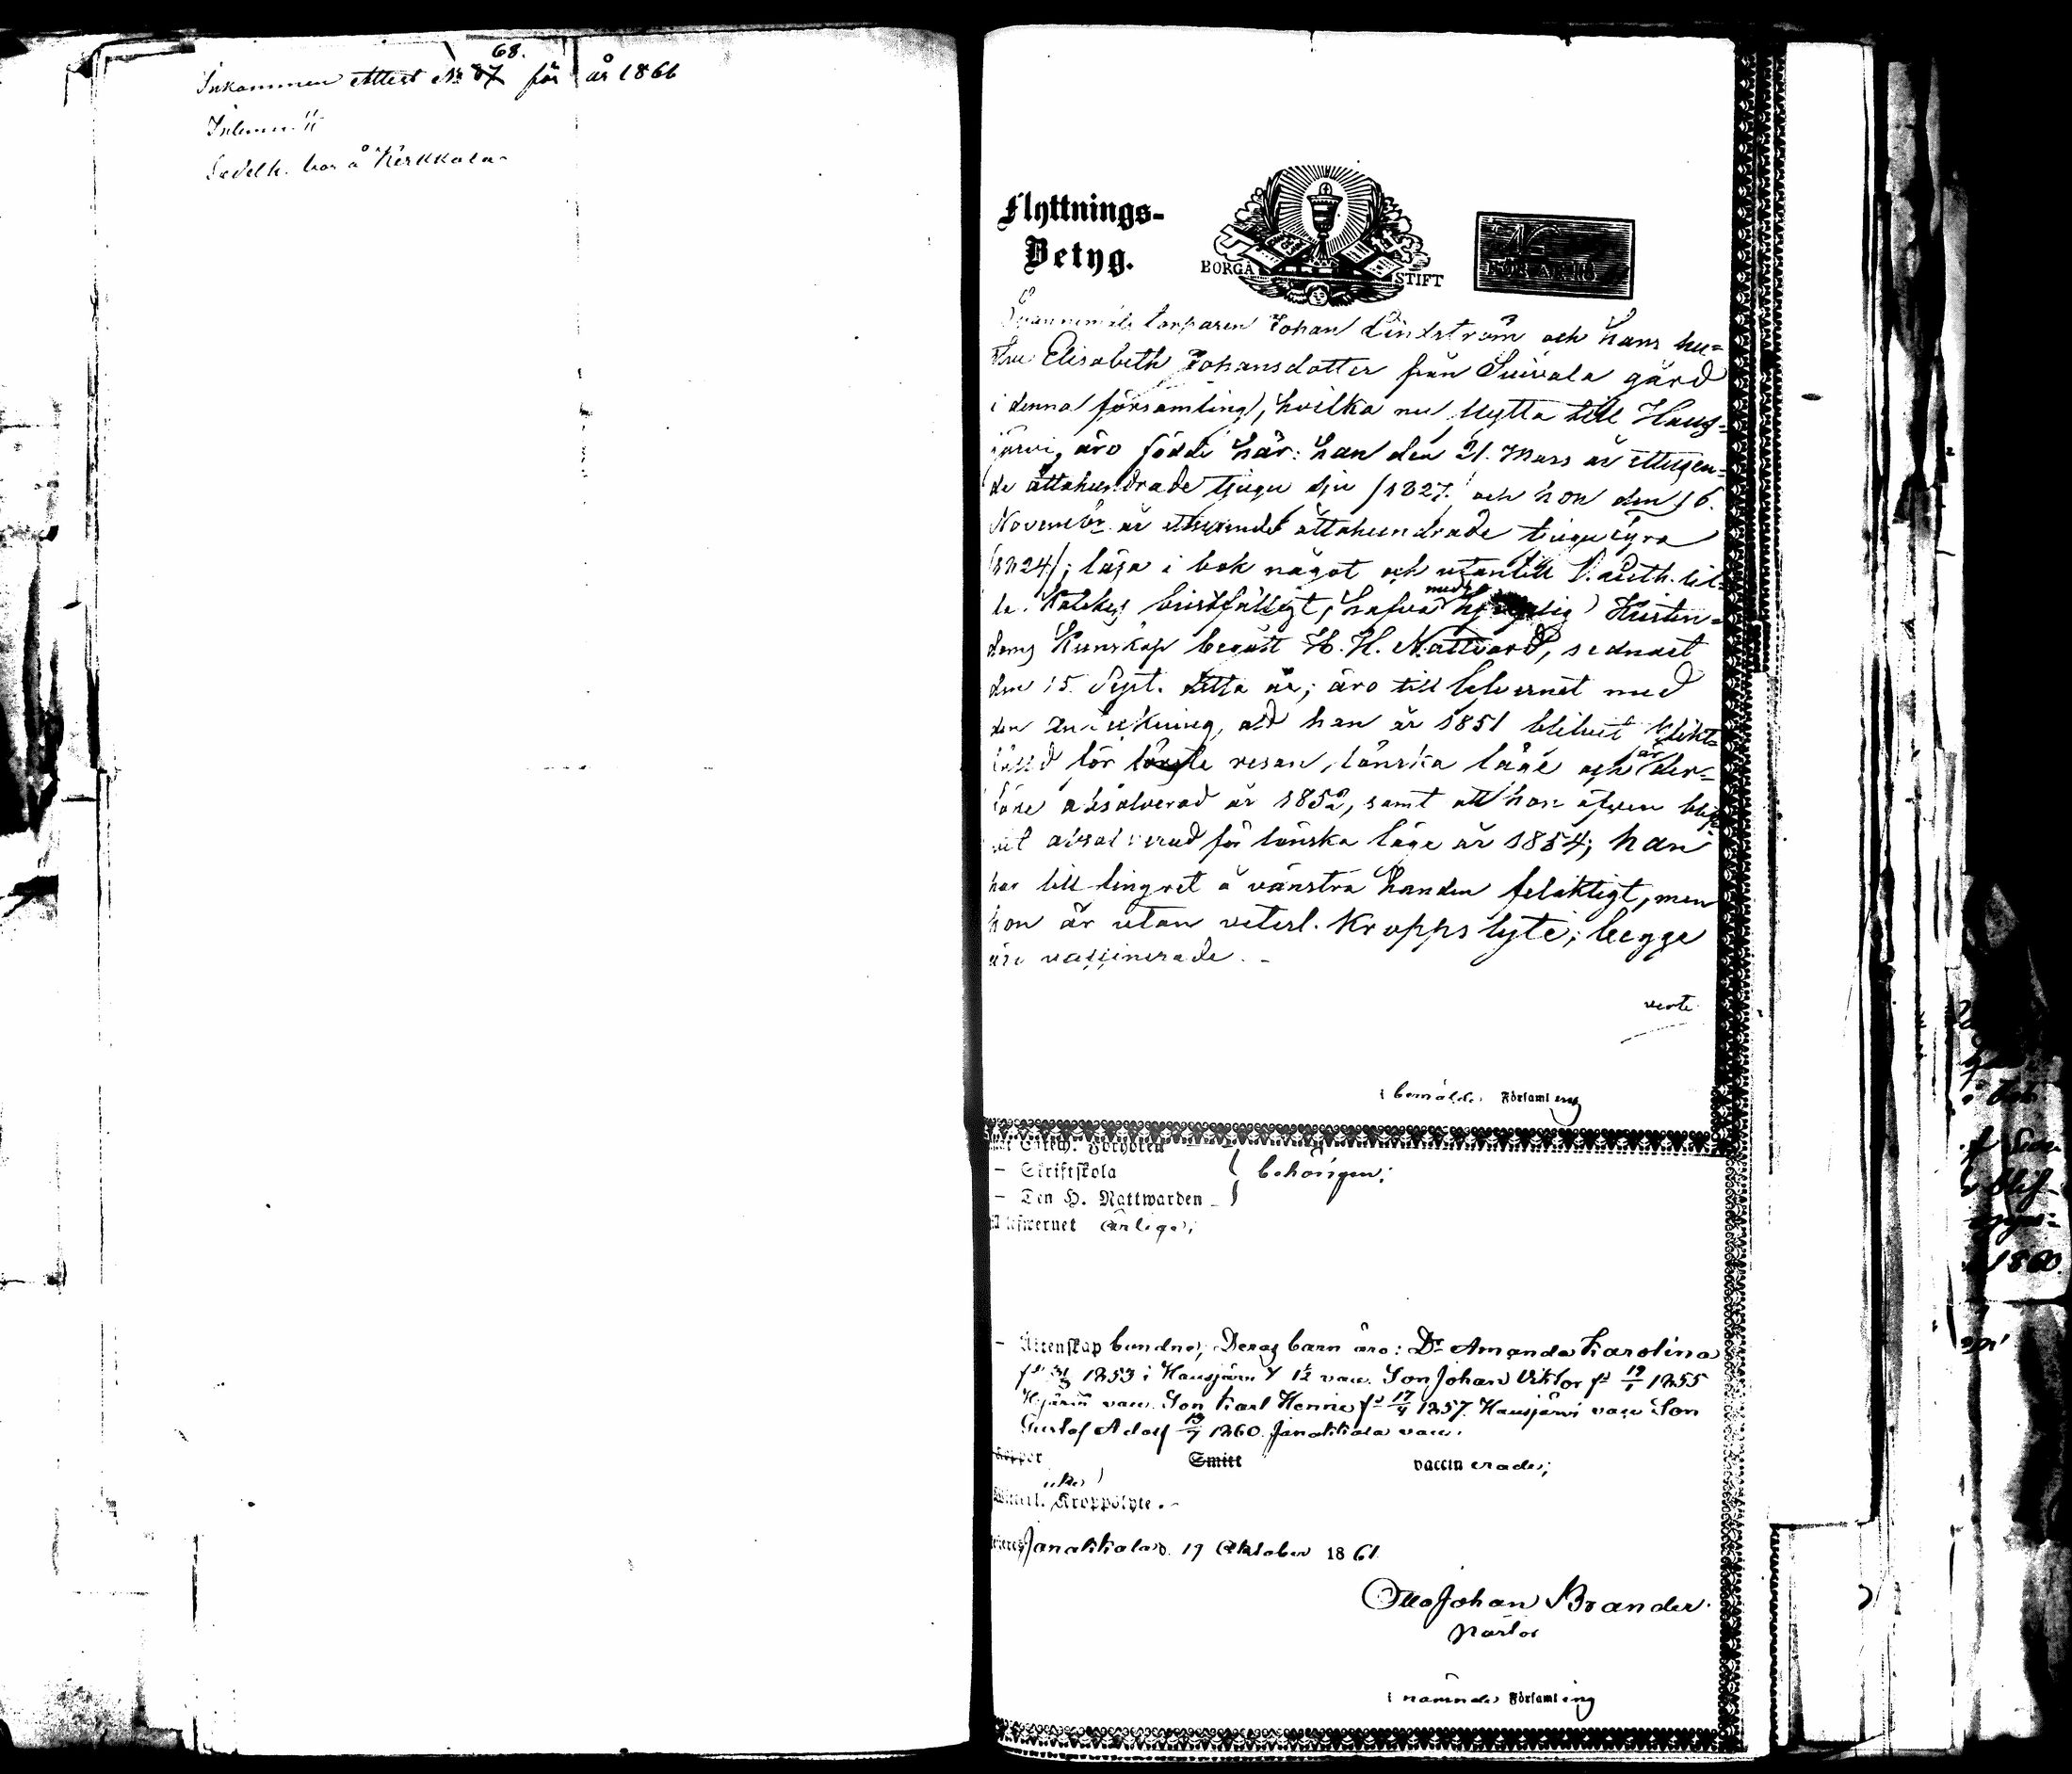 68.
Inkommen Attest No 87 för år 1866
bor å Kerkkola
Flyttnings-
Betyg.
BORGÅ STIFT
torparen Johan Lindström och hans hu=
stru Elisabeth Johansdotter från Suivala gård
i denna församling, hvilka nu flytta till Haus=
järvi, äro födde här: han den 21. Mars år ettusen=
de åttahundrade tjugu sju (1827. och hon den 16.
November år ettusende åttahundrade tiugufyra
(1824); läsa i bok något och utantill D. Luth. lil=
la. Katekes bristfälligt, hafva med Kristen=
doms Kunskap begått H. H. Nattvard, sednast
den 15. Sept. detta år; äro till lefvernet med
den anmärkning, att han år 1851 blifvit
för första resan lönska läge och är der=
före absolverad år 1852, samt att hon äfven blif
vit absolverad för lönska läge år 1854; han
har lillfingret å vänstra handen felaktigt, men
hon är utan veterl. kroppslyte; begge
äro vaccinerade. -
verte
i bemälde Församling
Förhören
— Skriftskola behörigen;
— Den H. Nattwarden
Lefwernet ärliga;
— Äktenskap bundne; Deras barn äro: Dr Amanda Karolina
1853 i Hausjärvi vacc. Son Johan Viktor fd 19/1 1855
Hjärvi vacc. Son Karl Henric fd 17/4 1857. Hausjärvi vacc Son
Gustaf Adolf 19/7 1860. Janakkala vacc.
Koppor Smitt vaccinerade;
Kroppslyte. -
Janakkala d. 19 Oktober 1861.
Otto Johan Brander.
Pastor
i nämnde Församling